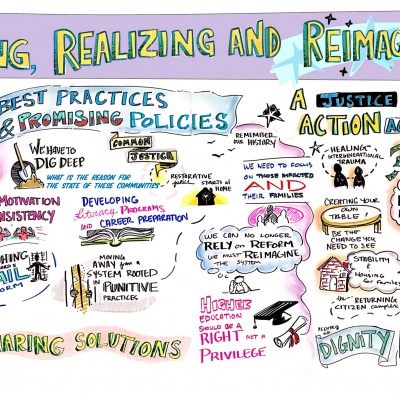 NG, REALIZING AND REIMAG
BEST PRACTICES
& PROMISING POLICIES
WE HAVE TO
DIG DEEP
COMMON
JUSTICE
WHAT IS THE REASON FOR
THE STATE OF THESE COMMUNITIES
RESTORATIVE
justice
STARTS at
HOME
MOTIVATION
NSISTENCY
DEVELOPING
Literacy PROGRAMS
AND CAREER PREPARATION
HING
AIL
FORM
MOVING
AWAY from a
SYSTEM ROOTED
IN PUNITIVE
PRACTICES
HARING SOLUTIONS
REMEMBER
OUR HISTORY
WE NEED TO FOCUS
ON THOSE IMPACTED
AND
THEIR FAMILIES
WE CAN NO LONGER
RELY ON REFORM
WE MUST REIMAGINE
THE SYSTEM
HIGHER
EDUCATION
SHOULD BE A
RIGHT NOT A
PRIVILEGE
A JUSTICE
ACTION AG
HEALING
INTERGENERATIONAL
TRAUMA
CREATING YOUR
OWN
TABLE
BE THE
CHANGE YOU
NEED TO SEE
STABILITY
&
HOUSING for
FAMILIE
THE RETURNING
CITIZEN
DIGNITY